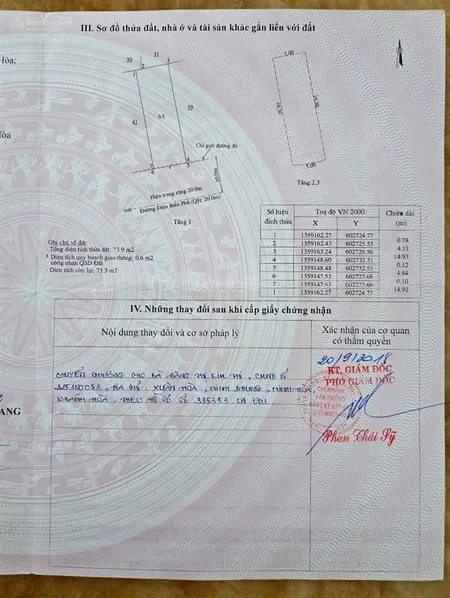 III. Sơ đồ thửa đất, nhà ở và tài sản khác gắn liền với đất
Hòa;
30
31
5.00
5.00
41
63
39
Chỉ giới đường đỏ
Hiện trạng rộng 20.0m
Đường Điện Biên Phủ (QH: 20.0m)
Tầng 1
Tầng 2,3
Ghi chú về đất:
Tổng diện tích thửa đất: 73.9 m2
Diện tích quy hoạch giao thông: 0.6 m2
công nhận QSD Đất
- Diện tích còn lại: 73.3 m2
Số hiệu đỉnh thửa
Toạ độ VN 2000
Chiều dài (m)
X
Y
1 1359162.27 602724.77
0.78
2 1359162.43 602725.53
4.11
3 1359163.24 602729.56
14.93
4 1359148.60 602732.51
0.12
5 1359148.48 602732.53
4.94
6 1359147.53 602727.68
0.10
7 1359147.63 602727.66
14.92
1 1359162.27 602724.77
IV. Những thay đổi sau khi cấp giấy chứng nhận
Nội dung thay đổi và cơ sở pháp lý
Xác nhận của cơ quan có thẩm quyền
20/9/2018
KT. GIÁM ĐỐC
PHÓ GIÁM ĐỐC
CHUYỂN NHƯỢNG CHO BÀ ĐẶNG THỊ KIM THI, CMND SỐ
ĐỊA CHỈ: XUÂN HÒA, NINH PHỤNG, NINH HÒA,
KHÁNH HÒA, THEO HỒ SƠ SỐ
Phan Thái Sỹ
ANG